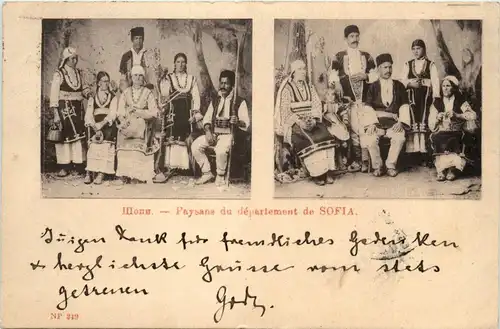 Шопи. — Paysans du département de SOFIA.
Innigen Dank für freundliches Gedenken
& herzlichste Grüsse vom stets
getreuen
NP 249